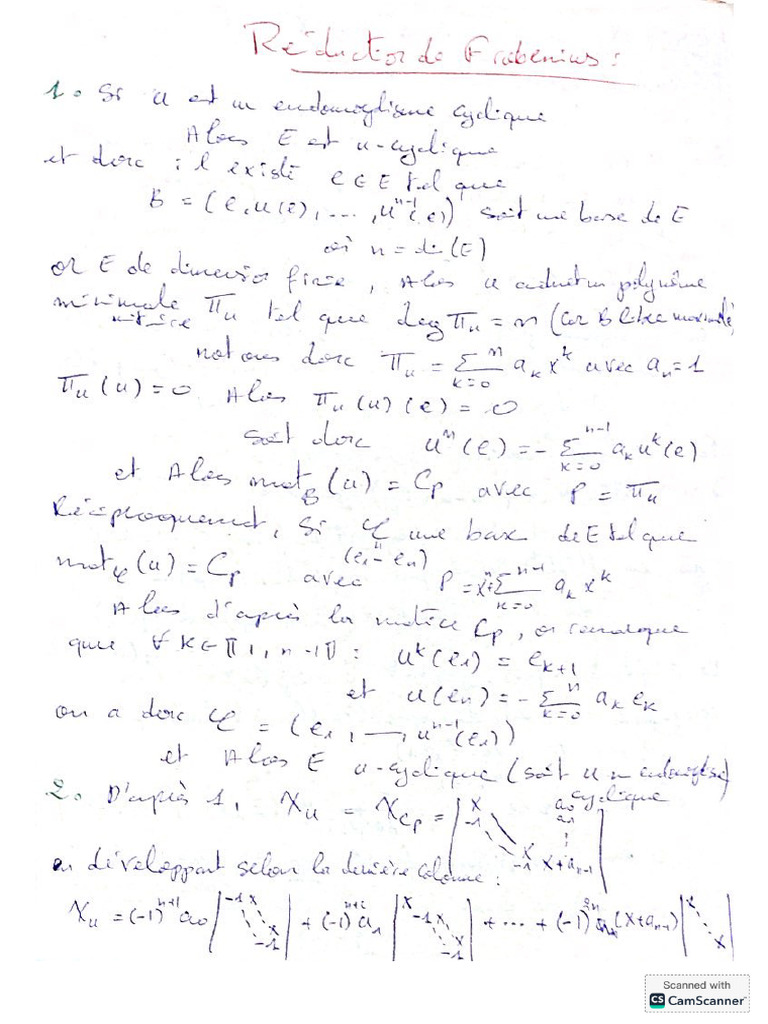 Réduction de Frobenius :
1. Si u est un endomorphisme cyclique
Alors E est u-cyclique
et donc : il existe e ∈ E tel que
B = (e, u(e), ..., u^{n-1}(e)) soit une base de E
où n = di(E)
or E de dimension finie, Alors u admet un polynôme
minimale Π_u tel que deg Π_u = n (car B libre maximale)
unitaire
notons donc Π_u = Σ_{k=0}^{n} a_k X^k avec a_n = 1
Π_u(u) = 0 Alors Π_u(u)(e) = 0
soit donc u^n(e) = - Σ_{k=0}^{n-1} a_k u^k(e)
et Alors mat_B(u) = C_P avec P = Π_u
Réciproquement, Si φ une base de E tel que
(e_1 – e_n)
mat_φ(u) = C_P avec P = X^n + Σ_{k=0}^{n-1} a_k X^k
Alors d'après la matrice C_P, on remarque
que ∀ k ∈ ⟦1, n-1⟧ : u^k(e_1) = e_{k+1}
et u(e_n) = - Σ_{k=0}^{n} a_k e_k
on a donc φ = (e_1, —, u^{n-1}(e_1))
et Alors E u-cyclique (soit u un endomorphisme
cyclique
2. D'après 1, χ_u = χ_{C_P} = | X a_0 -1 a_1 X -1 X + a_{n-1} |
en développant selon la dernière colonne :
χ_u = (-1)^{n+1} a_0 | -1 X X -1 | + (-1)^{n+2} a_1 | X -1 X X -1 | + ... + (-1)^{2n} (X + a_{n-1}) | X X |
Scanned with
CS CamScanner